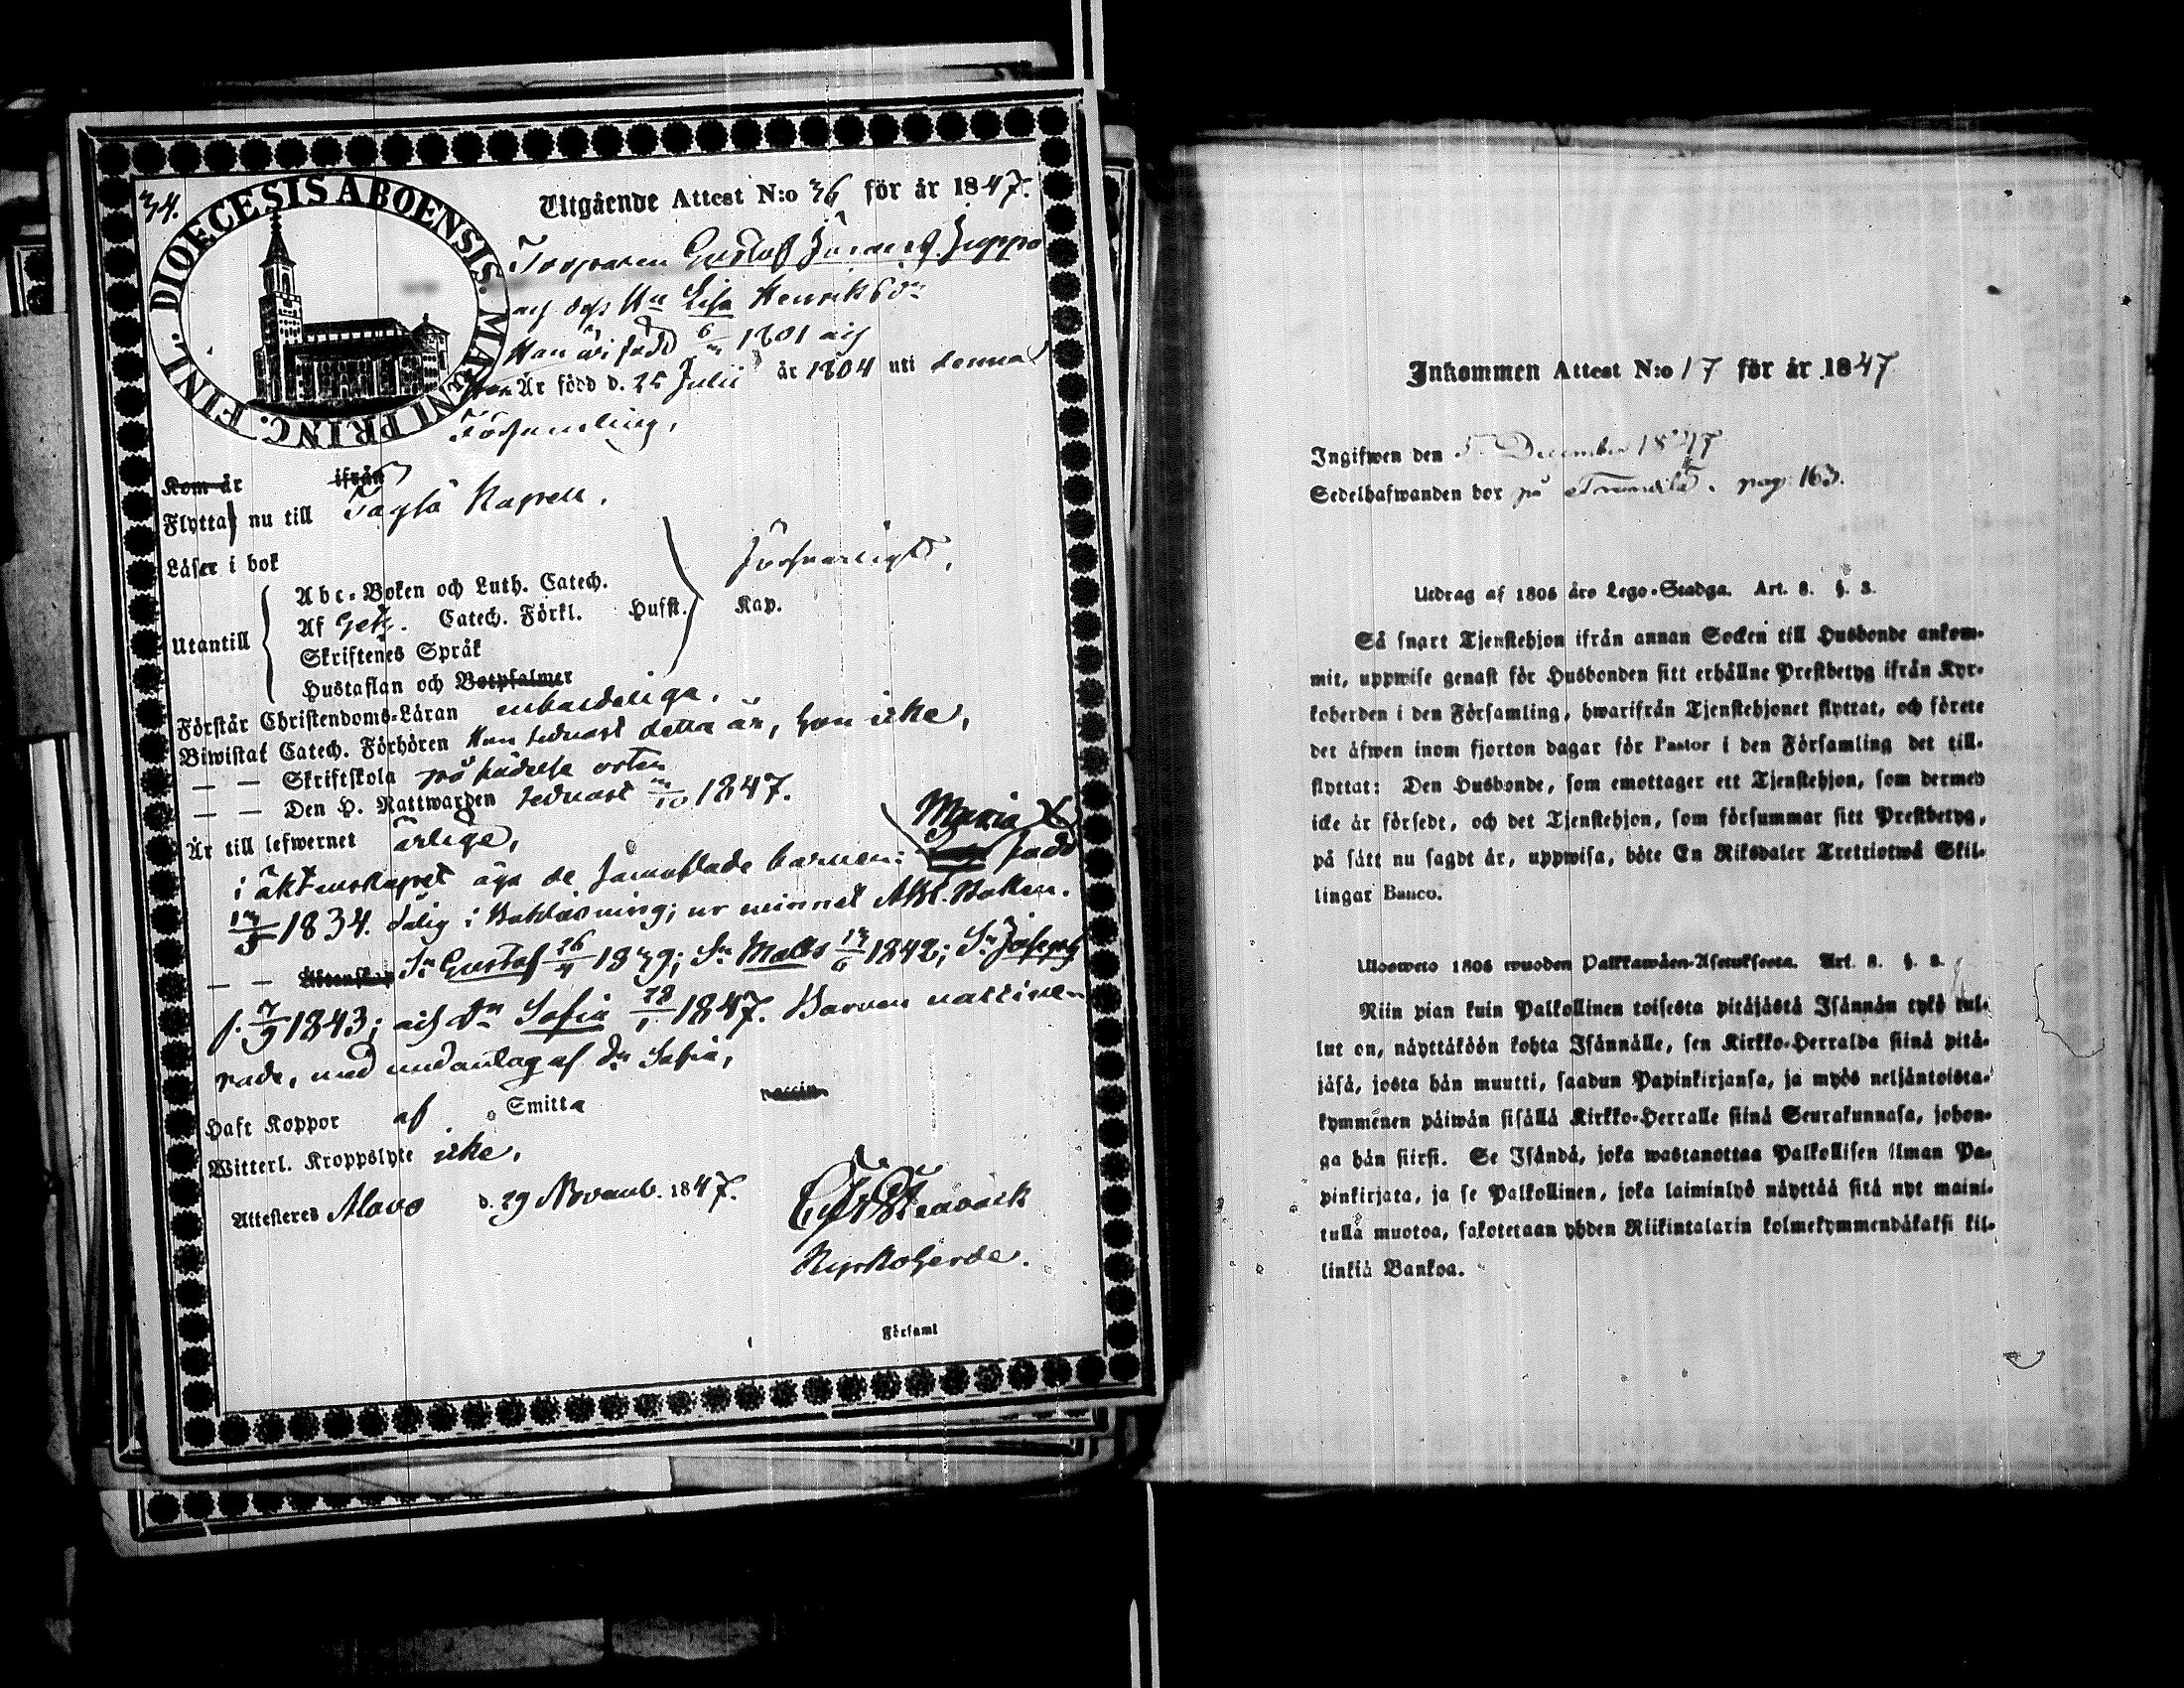 34.
DIOECESIS ABOENSIS. MAGNI PRINC. FINL.
Utgående Attest N:o 36 för år 1847.
Torparen Gustaf Jippo
och dess Hu Lisa Henriksdr
Han är född 6/ 1801 och
Hon Är född d. 25 Julii år 1804 uti denna
Församling,
Kom år ifrån
Flytta nu till Töysä Kapell.
Läser i bok
Utantill
Abc-Boken och Luth. Catech.
Af Catech. Förkl. Husst. Kap.
försvarligt,
Skriftenes Språk
Hustaflan och Botpsalmer
Förstår Christendoms-Läran enfaldeliga.
Biwistat Catech. Förhören Han sednast detta år, hon icke,
— — Skriftskola på födelse orten
— — Den H. Nattwarden sednast /10 1847.
Är till lefwernet ärliga,
i äktenskapet äga de sammaflade barnen: Maria född
/3 1834. dålig i Bokläsning; ur minnet ABC. Boken.
— — Äktenskap Sn Gustaf 26/4 1839; Sn Matts 13/6 1842; Sn Josef
f. 7/9 1843; och Dr Sofia 28/1 1847. Barnen vaccine-
rade, med undantag af Dr Sofia,
Haft Koppor af Smitta vaccin
Witterl. Kroppslyte icke,
Attesteras Alavo d. 29 Novemb. 1847.
Kyrkoherde.
Församl
Inkommen Attest N:o 17 för år 1847
Ingifwen den 5 December 1847
Sedelhafwanden bor på pag: 163.
Utdrag af 1805 års Lego-Stadga. Art. 8. §. 3.
Så snart Tjenstehjon ifrån annan Socken till Husbonde ankom-
mit, uppwise genast för Husbonden sitt erhållne Prestbetyg ifrån Kyr-
koherden i den Församling, hwarifrån Tjenstehjonet flyttat, och förete
det äfwen inom fjorton dagar för Pastor i den Församling det till-
flyttat: Den Husbonde, som emottager ett Tjenstehjon, som dermed
icke är försedt, och det Tjenstehjon, som försummar sitt Prestbetyg,
på sätt nu sagdt är, uppwisa, böte En Riksdaler Trettiotwå Skil-
lingar Banco.
Ulosweto 1805 wuoden Palkkawäen-Asetuksesta. Art. 8. §. 3.
Niin pian kuin Palkollinen toisesta pitäjästä Isännän tykö tul-
lut on, näyttäköön kohta Isännälle, sen Kirkko-Herralda siinä pitä-
jäsä, josta hän muutti, saadun Papinkirjansa, ja myös neljäntoista-
kymmenen päiwän sisällä Kirkko-Herralle siinä Seurakunnasa, johon-
ga hän siirsi. Se Isändä, joka wastanottaa Palkollisen ilman Pa-
pinkirjata, ja se Palkollinen, joka laiminlyö näyttää sitä nyt maini-
tulla muotoa, sakotetaan yhden Riikintalarin kolmekymmendäkaksi kil-
linkiä Bankoa.